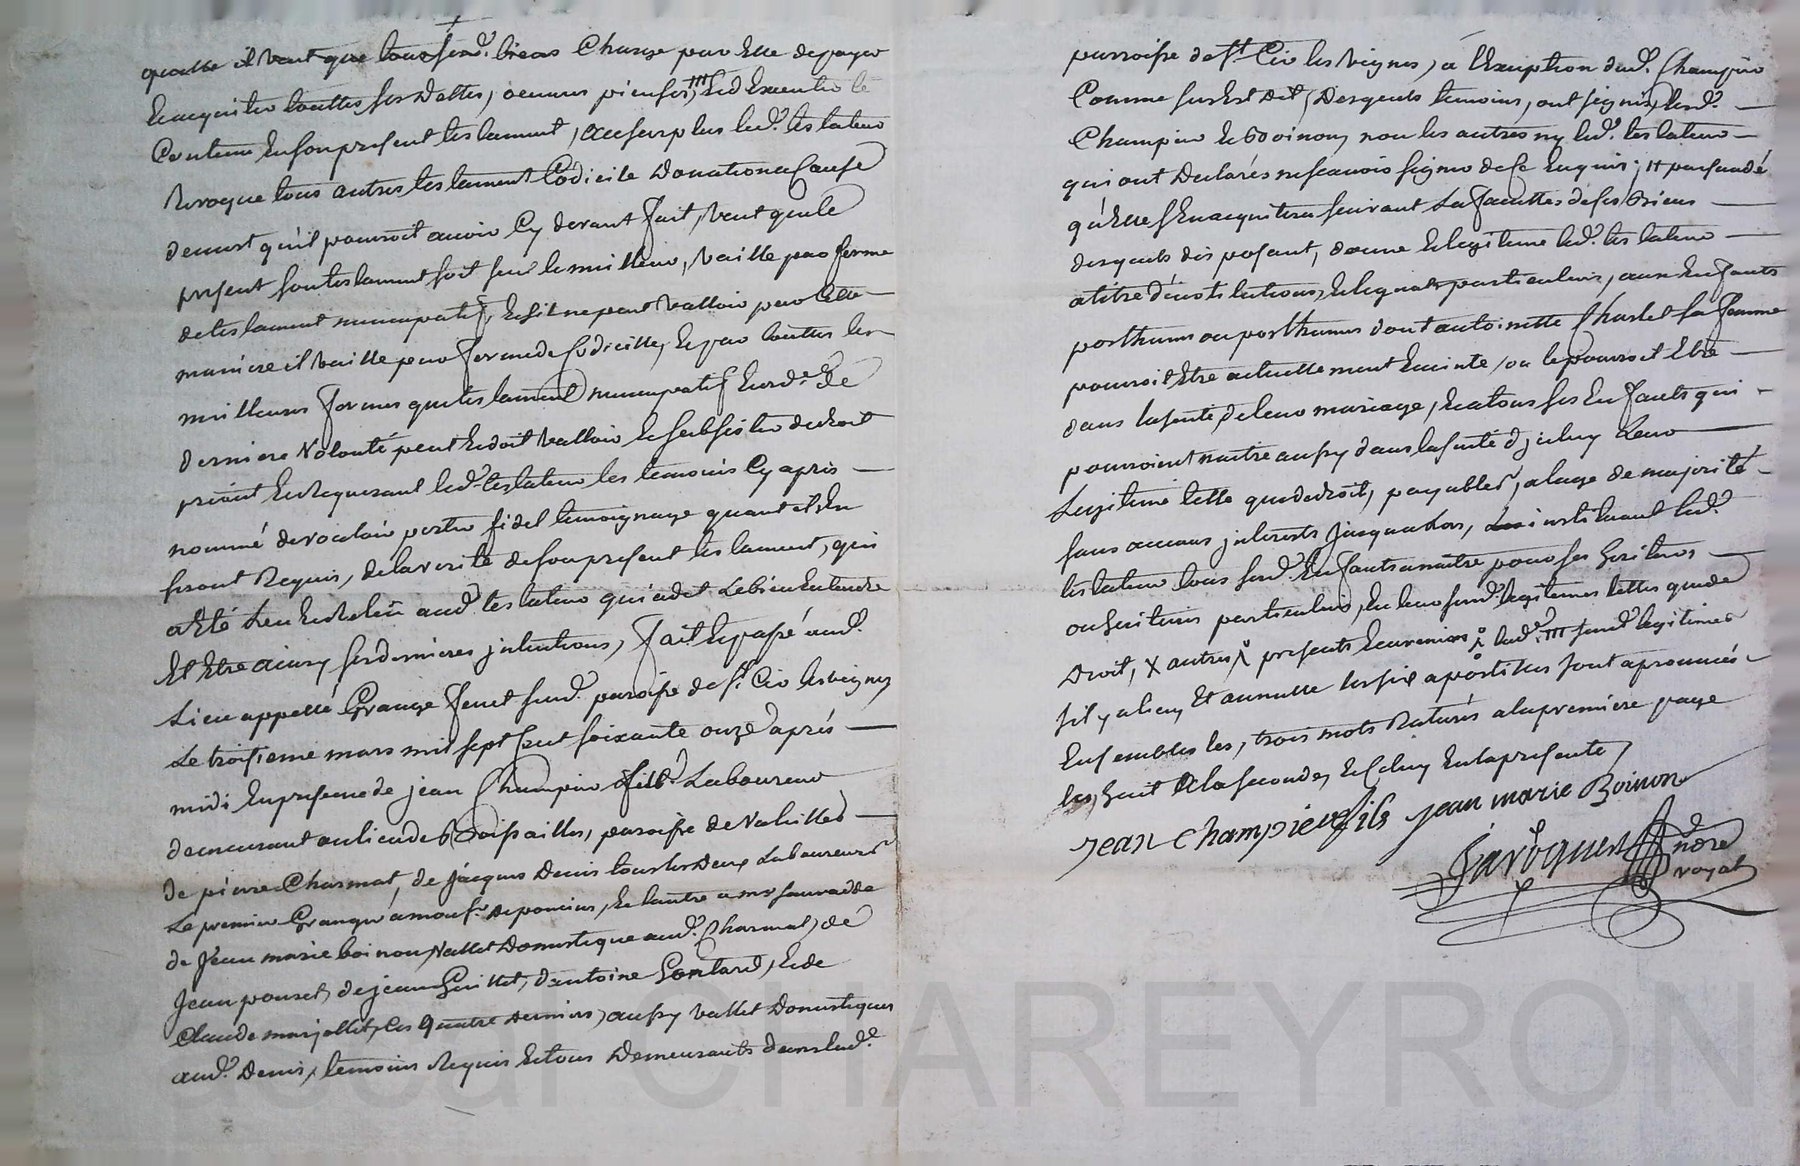 quelle il veut que tous sesd. biens Charge par Elle de payer
Et acquiter touttes ses Dettes, oeuvres pieuses, Et d'Executer le
Contenu En son present testament, au surplus led. testateur
Revoque tous autres testament Codicile Donation a Cause
de mort qu'il pouroit avoir Cy devant fait, veut que le
present son testament soit seul le meilleur, vaille par forme
de testament nuncupatif, Et s'il ne peut valloir par Cette
maniere il vaille par forme de Codicille, Et par touttes les
meilleures formes que testament nuncupatif Et ord.ce de
derniere volonté peut Et doit valloir Et subsister de droit
priant Et Requerant led. testateur les temoins Cy après
nommé de vouloir porter fidel temoignage quant ils En
seront Requis, de la verité de son present testament, qui
a Eté Leu Et Relû aud. testateur qui a dit Le bien Entendre
Et Etre ainsy ses dernieres intentions, fait Et passé aud.
Lieu appellé Grange Feuet susd. paroisse de St. Cir les vignes
Le troisieme mars mil sept Cent soixante onze après
midi En presence de jean Champier fils Laboureur
demeurant au lieu des Boissailles, paroisse de Valeilles
de pierre Charmat, de jacques Denis tous les Deux Laboureurs
Le premier Granger à mons.r de poncins, Et l'autre a mr Sauvade
de jean marie boinon, Vallet Domestique aud. Charmat, de
jean pouset, de jean Guillet, d'antoine Gontard, Et de
Claude marjollet, les quatre derniers, aussy vallet Domestiques
aud. Denis, temoins Requis Et tous Demeurants dans lad.e
parroisse de St. Cir les vignes, a l'Exception dud. Champier
Comme sus Est Dit, Desquels temoins, ont signés, lesd.
Champier Et Boinon, non les autres ny led. testateur
qui ont Declarés ne scavoir signer de Ce Enquis; persuadé
qu'Elle s'En acquitera suivant La facultés de ses Biens
desquels disposant, donne Et legitime led. testateur
a titre d'institutions, Et legats particuliers, aux Enfants
posthumes ou posthumes dont antoinette Charlet sa femme
pouroit Etre actuellement Enceinte, ou le pouroit Etre
dans la suite de leur mariage, Et a tous ses Enfants qui
pouroient naitre aussy dans la suite d'jceluy Leur
Legitime telle que de droit, payables, a l'age de majorité
sans aucuns jnterests jusqu'alors, instituant led.
testateur tous sesd. Enfants a naitre pour ses heritiers
ou heritieres particuliers, En leur susd. legitimes telles que de
Droit, X autres, presents Et avenirs, lad.e III susd. legitimes
s'il y a lieu Et annulle les six apostilles sont aprouvées
Ensembles les, trois mots Raturés a la premiere page
les huit de la seconde, Et Celuy En la presente,
jean Champier fils jean marie Boinon
Javoquet
nore
royal
accur CHAREYRON